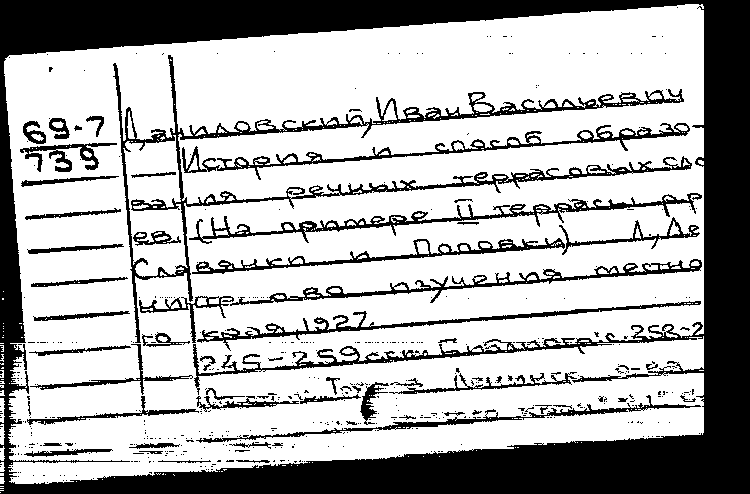 69-7
739
Даниловский, Иван Васильевич
История и способ образо-
вания речных террасовых сло
ев. (На примере II террасы р.р
Славянки и Поповки). Л., Ле
нингр. о-во изучения местно
го края, 1927.
245-259 с.: Библиогр.: с. 258-2
Ленинск. о-ва
края"